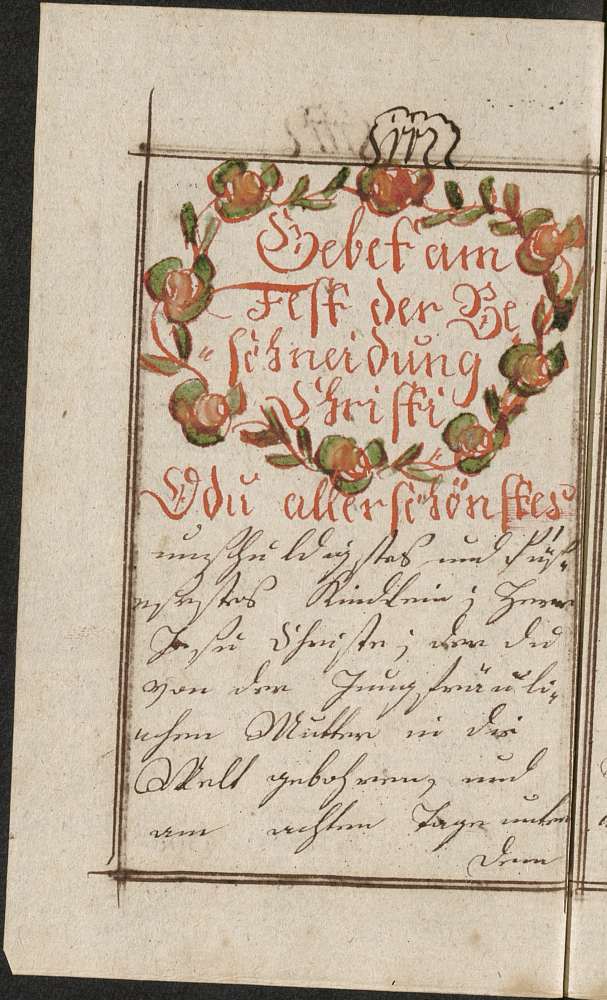 Gebet am
Fest der Be
"schneidung
Christi
O du allerschönstes
unschuldigstes und süß-
Kindlein; Herr
Jesu Christe; der du
von der Jungfräuli-
chen Mutter in die
Welt gebohren, und
am achten Tage unter
Denn